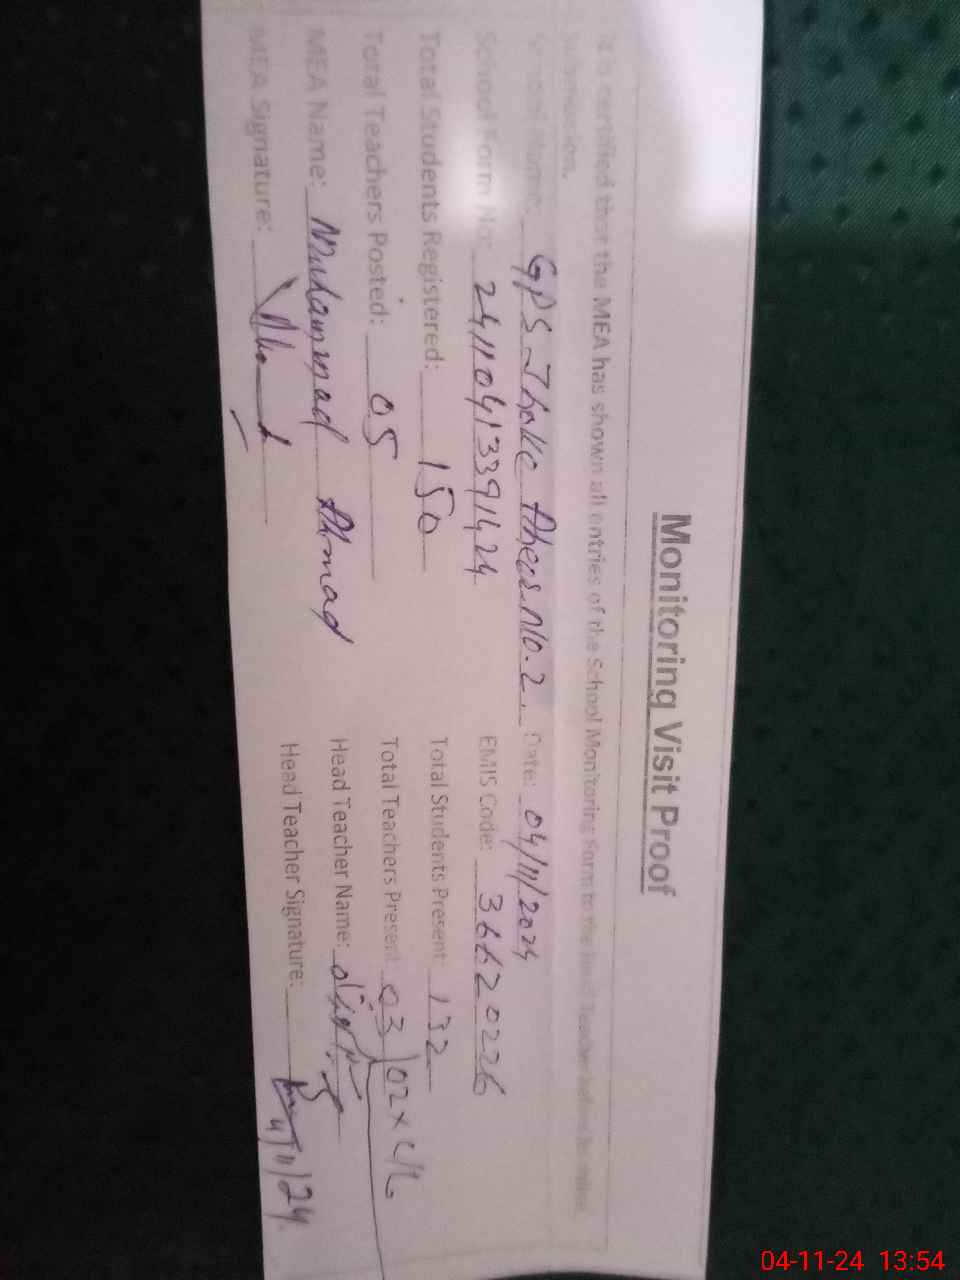 Monitoring Visit Proof
It is certified that the MEA has shown all entries of the School Monitoring Form to the Head Teacher before its online
submission.
School Name: GPS Jhoke No. 2. Date: 04/11/2024
School Form No: 24110413391424 EMIS Code: 36620226
Total Students Registered: 150 Total Students Present: 132
Total Teachers Posted: 05 Total Teachers Present: 03/02 x C/L
MEA Name: Muhammad Ahmad Head Teacher Name:
MEA Signature: Head Teacher Signature: 4/11/24
04-11-24 13:54